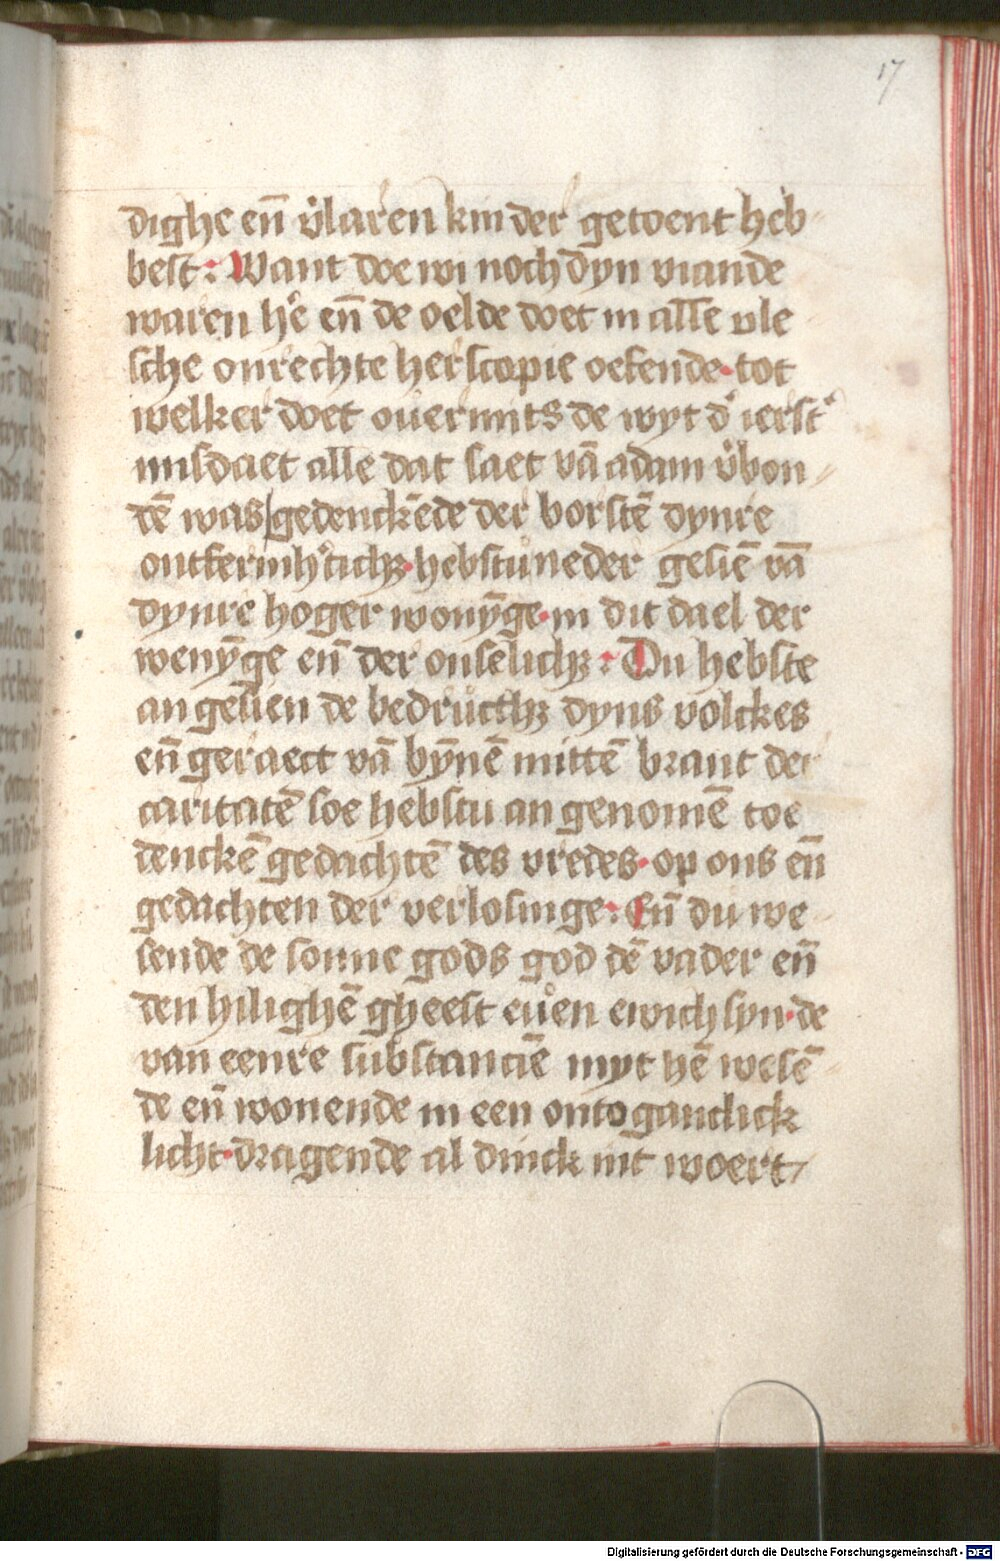 17
dighe en̄ v̾laren kinder getoent heb-
best: Want doe wi noch dyn viande
waren he͛ en̄ de oelde doet in alle vle
sche onrechte herscopie oefende· tot
welker doet ouermits de wyt d͛ ierst͛
misdaet alle dat saet vā adam v̾bon-
dē was gedenckēde der borstē dynre
ontfermh͛ticħʒ· hebstu neder gesiē vā
dynre hoger wonȳge· in dit dael der
wenȳge en̄ der onsēlicħʒ: Du hebste
an geuen de bedructħʒ dyns volckes
en̄ geraect vā bȳnē mittē brant der
caritatē soe hebstu an genomē toe
denckē gedachtē des vredes· op ons en̄
gedachten der verlosinge: En̄ du we-
sende de sonne gods god dē vader en̄
den hilighē gheest euen ewich syn· de
van eenre substanciē myt hē wesē-
de en̄ wonende in een ontoganclick
licht· dragende al dinck mit woert
Digitalisierung gefördert durch die Deutsche Forschungsgemeinschaft - DFG